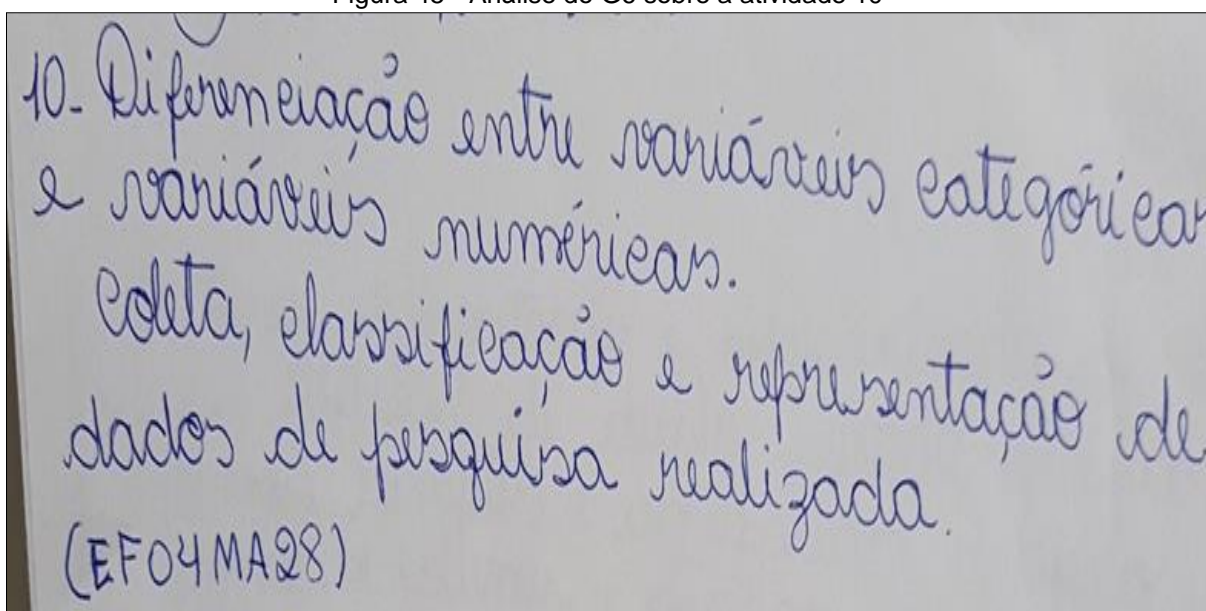 10- Diferenciação entre variáveis categóricas
e variáveis numéricas.
Coleta, classificação e representação de
dados de pesquisa realizada.
(EF04MA28)